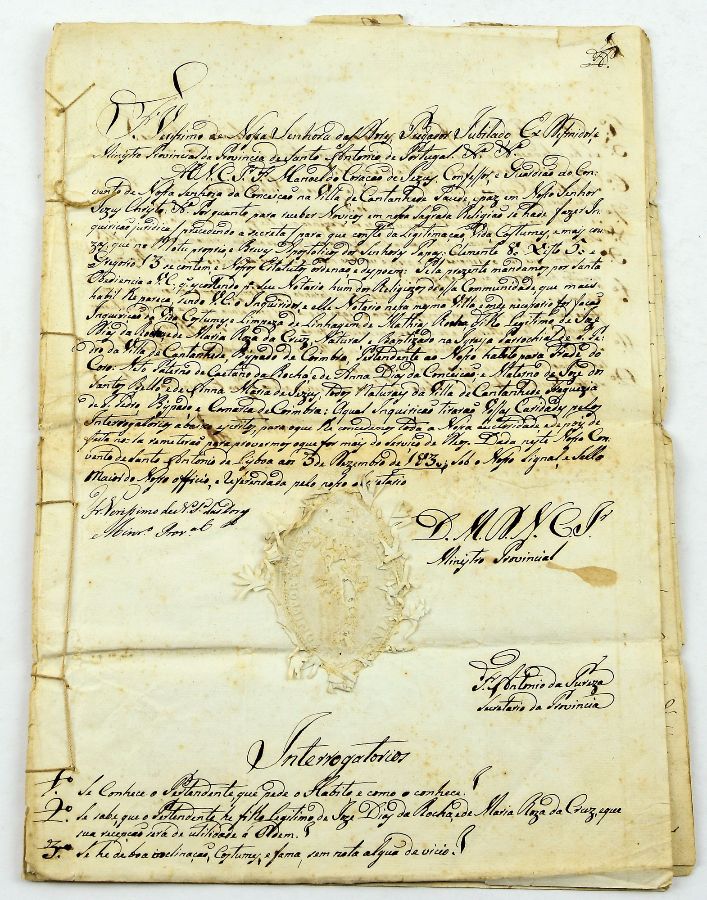 Fr. Verissimo de Nossa Senhora das Dores Pregador Jubilado Ex Definidor, e
Ministro Provincial da Provincia de Santo Antonio de Portugal. &.ª &.ª
Manoel do Coração de Jezus, Confessor, e Guardião do Con-
vento de Nossa Senhora da Conceição na Villa de Cantanhede Saude, e paz em Nosso Senhor
Jezus Christo. Porquanto para receber Noviços em nossa Sagrada Religião se hade fazer In-
quirição juridica (precedendo a secreta) para que conste da Legitimação, Vida Costumes, e mais cou-
zas, que no Motu proprio e Breves Apostolicos dos Senhores Papas; Clemente 8.º Xisto 5.º e
Gregorio 13 se contem, e Nossos Estatutos ordenão, e dispoem: Pela prezente mandamos, por Santa
Obediencia a V.C. q. escolhendo p.ª seu Notario hum dos Religiozos dessa Communidade, que mais
habil lhe pareça, sendo V.C. o Inquiridor, e elle Notario nessa mesma Villa, e onde necessario for, fação
Inquirição de Vida Costumes, e Limpeza de Linhagem de Mathias Rocha, Filho Legitimo de Joze
Dias da Rocha, e de Maria Roza da Cruz, Natural e Baptizado na Igreja Parrochial de S. Pe-
dro da Villa de Cantanhede, Bispado de Coimbra, Pertendente ao Nosso habito para Frade do
Coro. Neto Paterno de Caetano da Rocha, e de Anna Dias da Conceição, e Materno de Joze dos
Santos Bello, e de Anna Maria de Jezus, todos Naturaes da Villa de Cantanhede, Freguezia
de S. Pedro, Bispado, e Comarca de Coimbra: a qual Inquirição tirarão Vossas Caridades pelos
Interrogatorios abaixo escritos, para o que lhe concedemos toda a Nossa autoridade, e depois de
feita no-la remetirão para provermos o que for mais do serviço de Deos. Dada neste Nosso Con-
vento de Santo Antonio de Lisboa aos 3 de Dezembro de 183 sob o Nosso Signal, e Sello
Maior do Nosso officio, e Referendada pelo nosso Secretario
Fr. Verissimo de N. Sr.ª das Dores
e Minr.º Prov.al
D. M. D. N. C. Jr
Ministro Provincial
Fr. Antonio da Pureza
Secretario da Provincia
Interrogatorios
1.º Se Conhece o Pertendente que pede o Habito e como o conhece.
2.º Se sabe que o Pertendente he filho legitimo de Joze Dias da Rocha, e de Maria Roza da Cruz, e que
sua recepção será de utilidade á Ordem.
3.º Se he de boa inclinação, Costumes, e fama, sem nota algua de vicio.